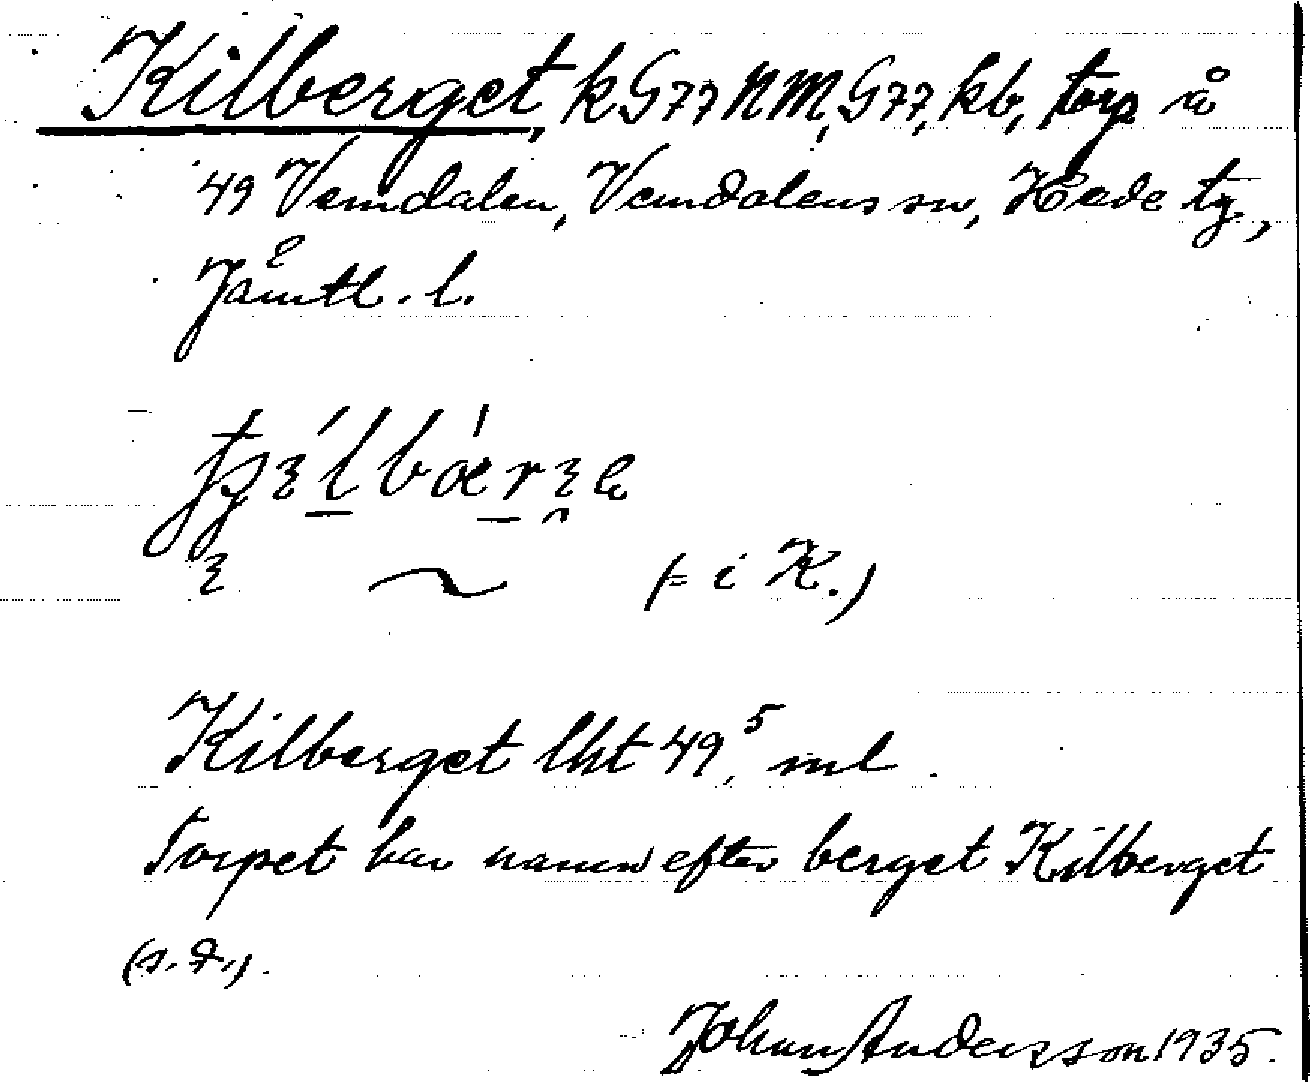 Kilberget, k G77 NM, G77, kb, torp å
49 Vemdalen, Vemdalens sn, Hede tg,
Jämtl. l.
(= i K.)
Kilberget lht 49,5 ml
Torpet har namn efter berget Kilberget
(s.d.).
Johan Andersson 1935.